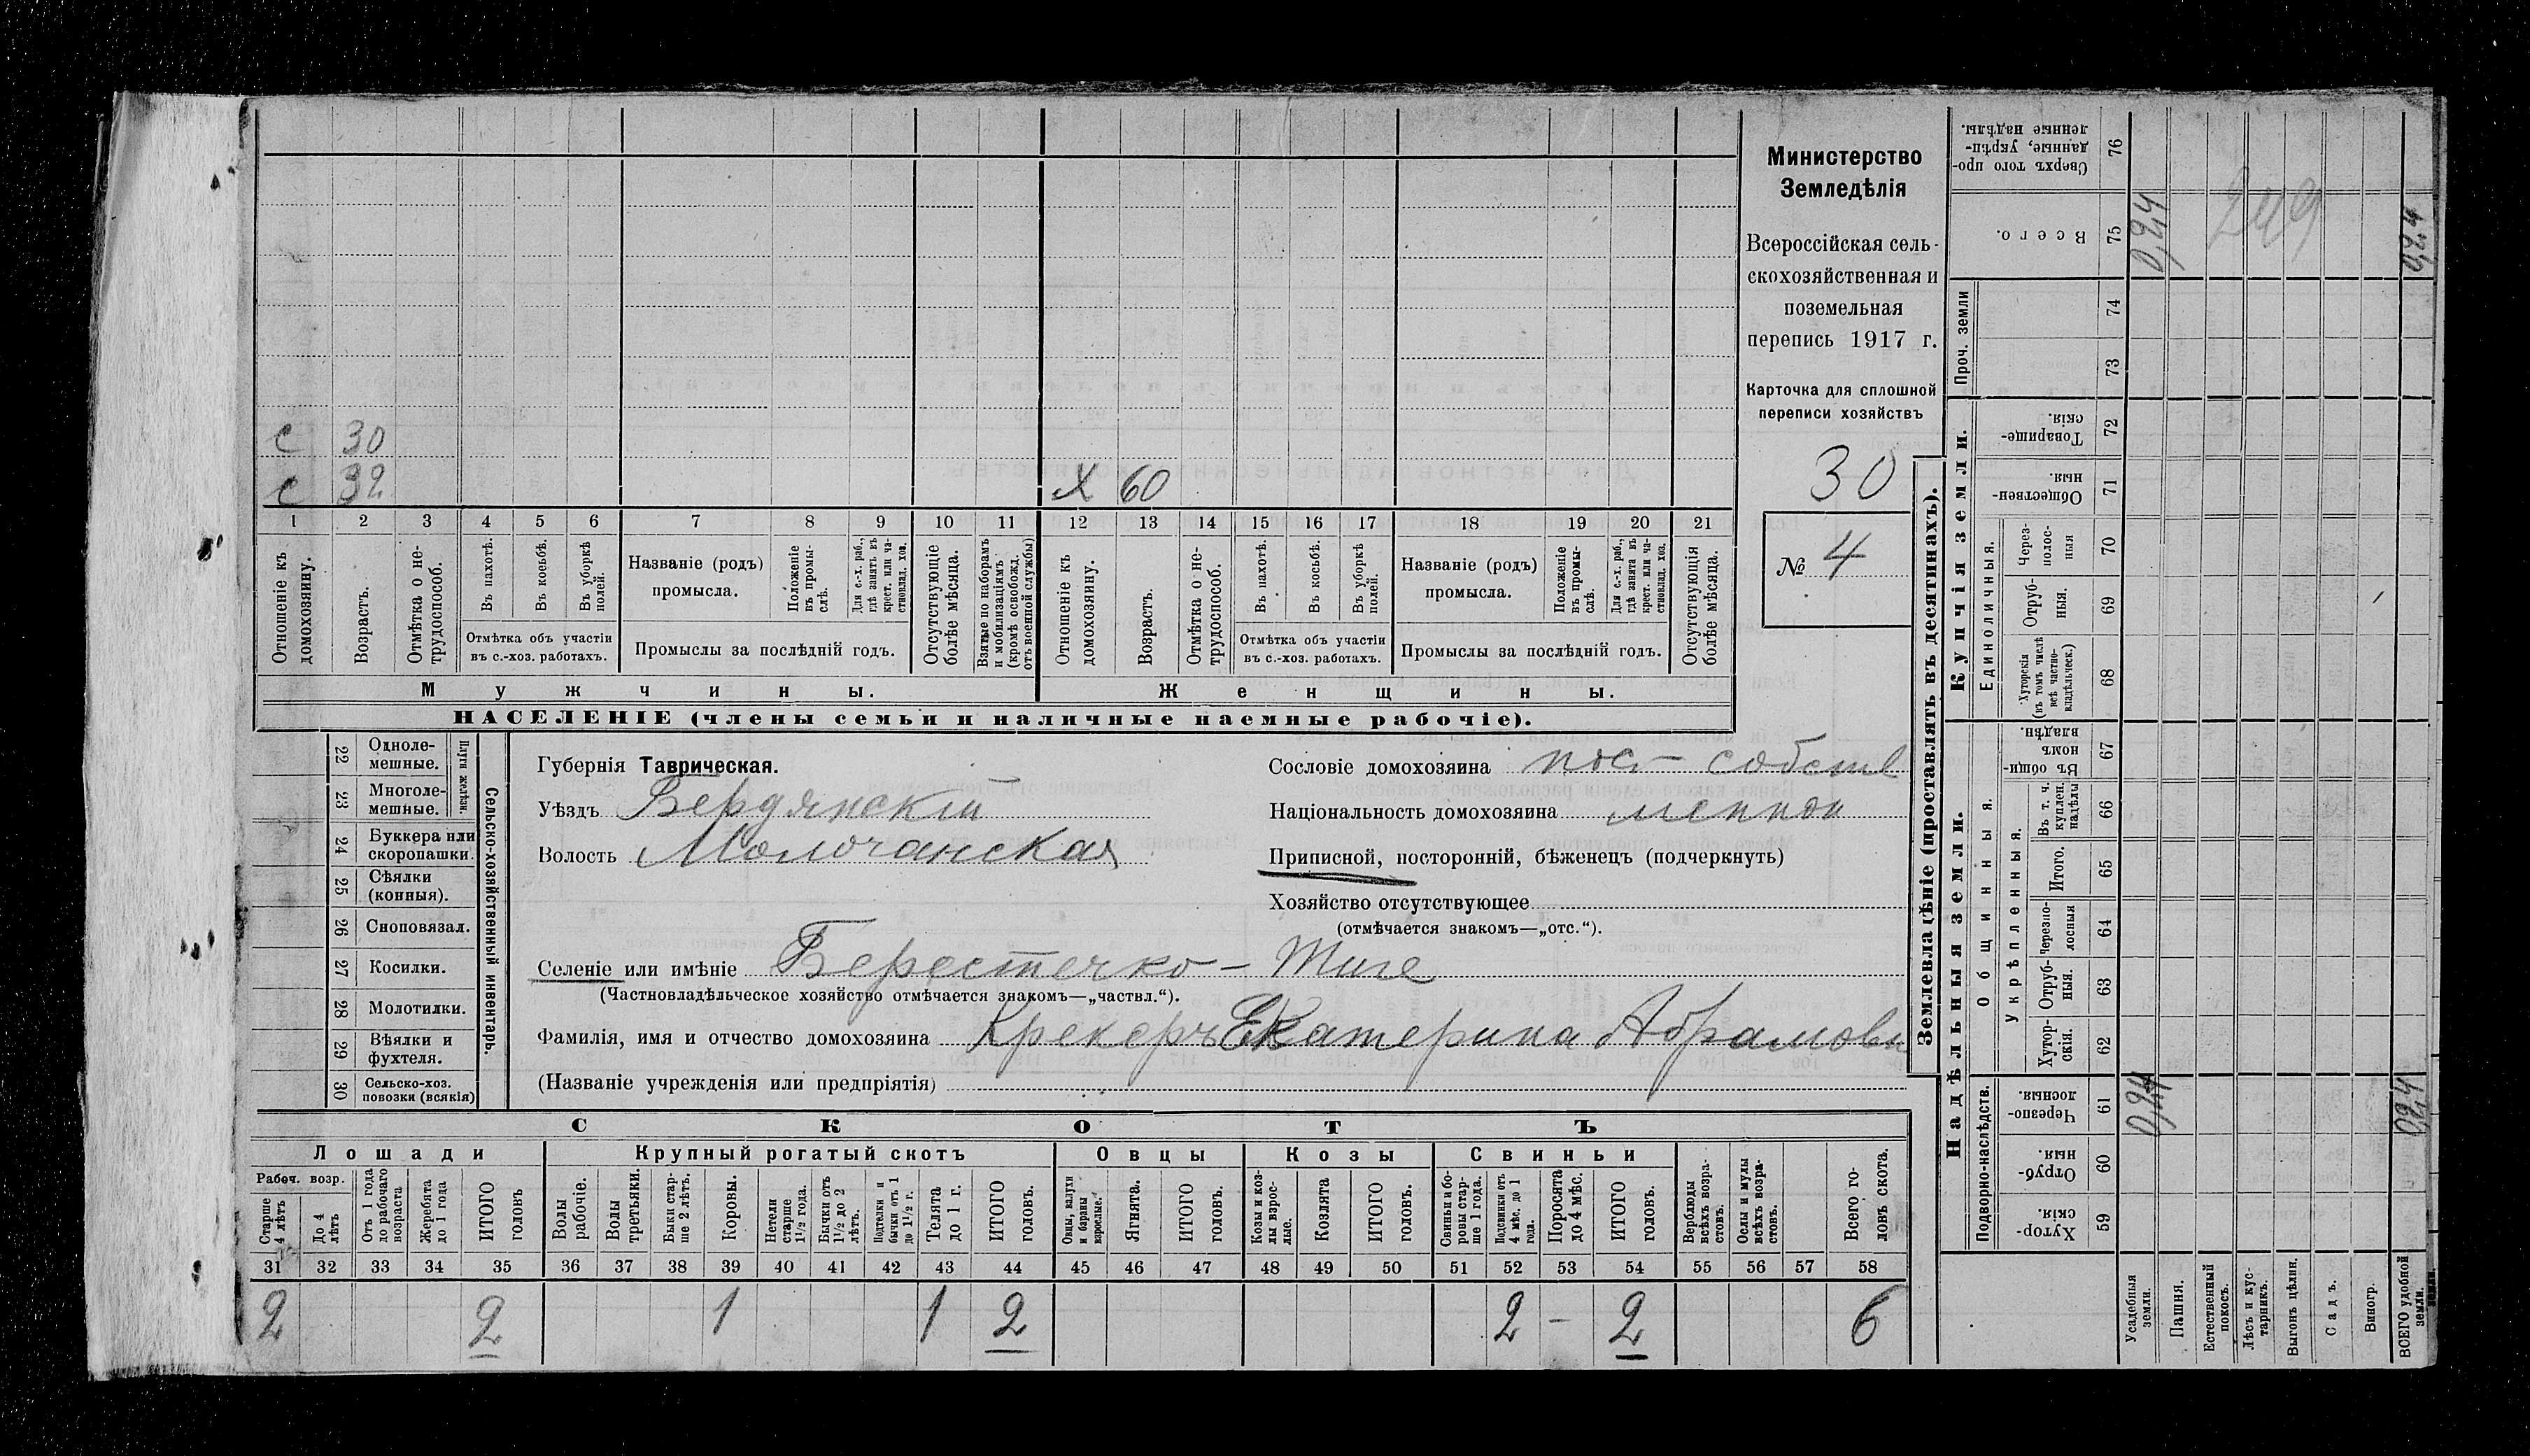 с 30
с 32
х 60
1 2 3 4 5 6 7 8 9 10 11 12 13 14 15 16 17 18 19 20 21
Отношеніе къ домохозяину.
Возрастъ.
Отмѣтка о не-
трудоспособ.
Въ пахотѣ.
Въ косьбѣ.
Въ уборкѣ
полей.
Отмѣтка объ участіи
въ с.-хоз. работахъ.
Названіе (родъ)
промысла.
Положеніе
въ промы-
слѣ.
Для с.-х. раб.,
гдѣ занятъ въ
крест. или ча-
стновлад. хоз.
Промыслы за послѣдній годъ.
Отсутствующіе
болѣе мѣсяца.
Взятые по наборамъ
и мобилизаціямъ
(кромѣ освобожд.
отъ военной службы)
Отношеніе къ
домохозяину.
Возрастъ.
Отмѣтка о не-
трудоспособ.
Въ пахотѣ.
Въ косьбѣ.
Въ уборкѣ
полей.
Отмѣтка объ участіи
въ с.-хоз. работахъ.
Названіе (родъ)
промысла.
Положеніе
въ промы-
слѣ.
Для с.-х. раб.,
гдѣ занята въ
крест. или ча-
стновлад. хоз.
Промыслы за послѣдній годъ.
Отсутствующія
болѣе мѣсяца.
Мужчины.
Женщины.
НАСЕЛЕНІЕ (члены семьи и наличные наемные рабочіе).
Министерство
Земледѣлія
Всероссійская сель-
скохозяйственная и
поземельная
перепись 1917 г.
Карточка для сплошной
переписи хозяйствъ
30
№ 4
22 Одноле-
мешные.
23 Многоле-
мешные.
Плуги желѣзн.
24 Буккера или
скоропашки.
25 Сѣялки
(конныя).
26 Сноповязал.
27 Косилки.
28 Молотилки.
29 Вѣялки и
фухтеля.
30 Сельско-хоз.
повозки (всякія)
Сельско-хозяйственный инвентарь.
Губернія Таврическая.
Уѣздъ Бердянскій
Волость Молочанская
Сословіе домохозяина пос- собств
Національность домохозяина меннон
Приписной, посторонній, бѣженецъ (подчеркнуть)
Хозяйство отсутствующее
(отмѣчается знакомъ—„отс.“).
Селеніе или имѣніе Берестечко - Тиге
(Частновладѣльческое хозяйство отмѣчается знакомъ—„частвл.“).
Фамилія, имя и отчество домохозяина Крекеръ Екатерина Абрамовн
(Названіе учрежденія или предпріятія)
СКОТЪ
Лошади
Крупный рогатый скотъ
Овцы
Козы
Свиньи
Рабоч. возр.
Старше
4 лѣтъ
До 4
лѣтъ
Отъ 1 года
до рабочаго
возраста
Жеребята
до 1 года
ИТОГО
головъ
Волы
рабочіе.
Волы
третьяки.
Быки стар-
ше 2 лѣтъ.
Коровы.
Нетели
старше
1½ года.
Бычки отъ
1½ до 2
лѣтъ.
Подтелки и
бычки отъ 1
до 1½ г.
Телята
до 1 г.
ИТОГО
головъ.
Овцы, валухи
и бараны
взрослые.
Ягнята.
ИТОГО
головъ.
Козы и коз-
лы взрос-
лые.
Козлята
ИТОГО
головъ.
Свиньи и бо-
ровы стар-
ше 1 года.
Подсвинки отъ
4 мѣс. до 1
года.
Поросята
до 4 мѣс.
ИТОГО
головъ.
Верблюды
всѣхъ возра-
стовъ.
Ослы и мулы
всѣхъ возра-
стовъ.
Всего го-
ловъ скота.
31 32 33 34 35 36 37 38 39 40 41 42 43 44 45 46 47 48 49 50 51 52 53 54 55 56 57 58
2 2 1 1 2 2 – 2 6
Землевладѣніе (проставлять въ десятинахъ).
Надѣльныя земли.
Купчія земли.
Проч. земли
Подворно-наслѣдств.
Общинныя.
Укрѣпленныя.
Единоличныя.
Сверхъ того про-
данные, укрѣп-
ленные надѣлы. 76
Всего. 75
74
73
Товарище-
скія. 72
Обществен-
ныя. 71
Через-
полос-
ныя 70
Отруб-
ныя. 69
Хуторскія
(въ томъ числѣ
всѣ частно-
владѣльческ.) 68
Въ общи-
номъ
владѣн. 67
Въ т. ч.
куплен.
надѣлы 66
Итого. 65
Черезпо-
лосныя 64
Отруб-
ныя. 63
Хутор-
скія. 62
Черезпо-
лосныя. 61
Отруб-
ныя. 60
Хутор-
скія. 59
Усадебныя
земли.
Пашня.
Естественный
покосъ.
Лѣсъ и кус-
тарникъ.
Выгонъ цѣлин.
Садъ.
Виногр.
ВСЕГО удобной
земли.
0,24
249
0,24
0,24
0,24